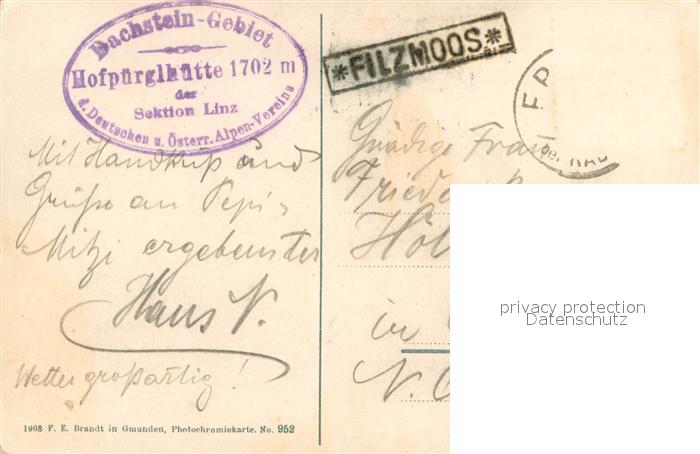 Dachstein-Gebiet
Hofpürglhütte 1702 m
der
Sektion Linz
d. Deutschen u. Österr. Alpen-Vereins
*FILZMOOS*
Mit Handkuß und
Grüße an Pepi,
Mitzi ergebenster
Hans V.
Wetter großartig!
1908 F. E. Brandt in Gmunden, Photochromiekarte. No. 952
Gnädige Frau
in
privacy protection
Datenschutz